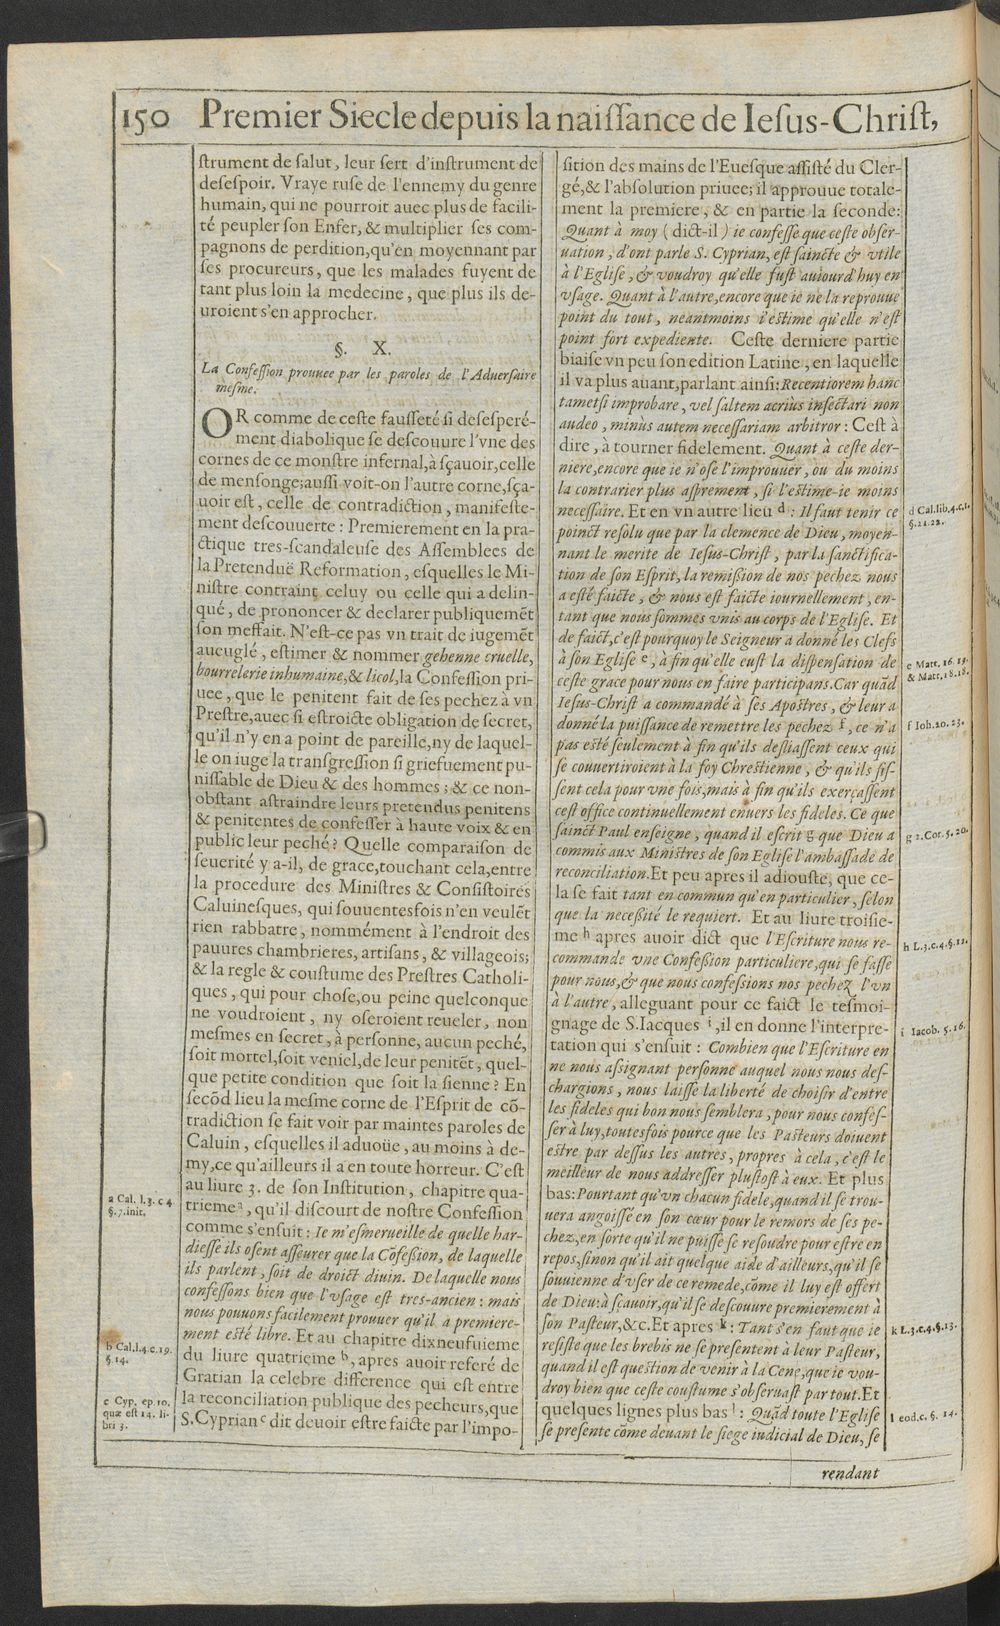 150 Premier Siecle depuis la naiſſance de Ieſus-Chriſt,
ſtrument de ſalut, leur ſert d'inſtrument de
deſeſpoir. Vraye ruſe de l'ennemy du genre
humain, qui ne pourroit auec plus de facili-
té peupler ſon Enfer, & multiplier ſes com-
pagnons de perdition, qu'en moyennant par
ſes procureurs, que les malades fuyent de
tant plus loin la medecine, que plus ils de-
uroient s'en approcher.
§. X.
La Confeſſion prouuee par les paroles de l'Aduerſaire
meſme.
OR comme de ceſte fauſſeté ſi deſeſperé-
ment diabolique ſe deſcouure l'vne des
cornes de ce monſtre infernal, à ſçauoir, celle
de menſonge; auſſi voit-on l'autre corne, ſça-
uoir eſt, celle de contradiction, manifeſte-
ment deſcouuerte: Premierement en la pra-
ctique tres-ſcandaleuſe des Aſſemblees de
la Pretenduë Reformation, eſquelles le Mi-
niſtre contraint celuy ou celle qui a delin-
qué, de prononcer & declarer publiquemẽt
ſon meffait. N'eſt-ce pas vn trait de iugemẽt
aueuglé, eſtimer & nommer gehenne cruelle,
bourrelerie inhumaine, & licol, la Confeſſion pri-
uee, que le penitent fait de ſes pechez à vn
Preſtre, auec ſi eſtroicte obligation de ſecret,
qu'il n'y en a point de pareille, ny de laquel-
le on iuge la tranſgreſſion ſi griefuement pu-
niſſable de Dieu & des hommes; & ce non-
obſtant aſtraindre leurs pretendus penitens
& penitentes de confeſſer à haute voix & en
public leur peché? Quelle comparaiſon de
ſeuerité y a-il, de grace, touchant cela, entre
la procedure des Miniſtres & Conſiſtoires
Caluineſques, qui ſouuentesfois n'en veulẽt
rien rabbatre, nommément à l'endroit des
pauures chambrieres, artiſans, & villageois;
& la regle & couſtume des Preſtres Catholi-
ques, qui pour choſe, ou peine quelconque
ne voudroient, ny oſeroient reueler, non
meſmes en ſecret, à perſonne, aucun peché,
ſoit mortel, ſoit veniel, de leur penitẽt, quel-
que petite condition que ſoit la ſienne? En
ſecõd lieu la meſme corne de l'Eſprit de cõ-
tradiction ſe fait voir par maintes paroles de
Caluin, eſquelles il aduoüe, au moins à de-
my, ce qu'ailleurs il a en toute horreur. C'eſt
au liure 3. de ſon Inſtitution, chapitre qua-
trieme a, qu'il diſcourt de noſtre Confeſſion
comme s'enſuit: Ie m'eſmerueille de quelle har-
dieſſe ils oſent aſſeurer que la Cõfeßion, de laquelle
ils parlent, ſoit de droict diuin. De laquelle nous
confeſſons bien que l'vſage eſt tres-ancien: mais
nous pouuons facilement prouuer qu'il a premiere-
ment eſté libre. Et au chapitre dixneufuieme
du liure quatrieme b, apres auoir referé de
Gratian la celebre difference qui eſt entre
la reconciliation publique des pecheurs, que
S. Cyprian c dit deuoir eſtre faicte par l'impo-
a Cal. l.3. c 4
§.7.init.
b Cal.l.4.c.19.
§.14.
c Cyp. ep.10.
quæ eſt 14. li-
bri 3.
ſition des mains de l'Eueſque aſſiſté du Cler-
gé, & l'abſolution priuee; il approuue totale-
ment la premiere, & en partie la ſeconde:
Quant à moy (dict-il) ie confeſſe que ceſte obſer-
uation, d'ont parle S. Cyprian, eſt ſaincte & vtile
à l'Egliſe, & voudroy qu'elle fuſt auiourd'huy en
vſage. Quant à l'autre, encore que ie ne la reprouue
point du tout, neantmoins i'eſtime qu'elle n'eſt
point fort expediente. Ceſte derniere partie
biaiſe vn peu ſon edition Latine, en laquelle
il va plus auant, parlant ainſi: Recentiorem hanc
tametſi improbare, vel ſaltem acriùs inſectari non
audeo, minùs autem neceſſariam arbitror: Ceſt à
dire, à tourner fidelement. Quant à ceſte der-
niere, encore que ie n'oſe l'improuuer, ou du moins
la contrarier plus aſprement, ſi l'eſtime-ie moins
neceſſaire. Et en vn autre lieu d: Il faut tenir ce
poinct reſolu que par la clemence de Dieu, moyen-
nant le merite de Ieſus-Chriſt, par la ſanctifica-
tion de ſon Eſprit, la remißion de nos pechez nous
a eſté faicte, & nous eſt faicte iournellement, en-
tant que nous ſommes vnis au corps de l'Egliſe. Et
de faict, c'eſt pourquoy le Seigneur a donné les Clefs
à ſon Egliſe e, à fin qu'elle euſt la diſpenſation de
ceſte grace pour nous en faire participans. Car quãd
Ieſus-Chriſt a commandé à ſes Apoſtres, & leur a
donné la puiſſance de remettre les pechez f, ce n'a
pas eſté ſeulement à fin qu'ils deſliaſſent ceux qui
ſe conuertiroient à la foy Chreſtienne, & qu'ils fiſ-
ſent cela pour vne fois, mais à fin qu'ils exerçaſſent
ceſt office continuellement enuers les fideles. Ce que
ſainct Paul enſeigne, quand il eſcrit g que Dieu a
commis aux Miniſtres de ſon Egliſe l'ambaſſade de
reconciliation. Et peu apres il adiouſte, que ce-
la ſe fait tant en commun qu'en particulier, ſelon
que la neceßité le requiert. Et au liure troiſie-
me h apres auoir dict que l'Eſcriture nous re-
commande vne Confeßion particuliere, qui ſe faſſe
pour nous, & que nous confeſſions nos pechez l'vn
à l'autre, alleguant pour ce faict le teſmoi-
gnage de S. Iacques i, il en donne l'interpre-
tation qui s'enſuit: Combien que l'Eſcriture en
ne nous aſsignant perſonne auquel nous nous deſ-
chargions, nous laiſſe la liberté de choiſir d'entre
les fideles qui bon nous ſemblera, pour nous confeſ-
ſer à luy, toutesfois pource que les Paſteurs doiuent
eſtre par deſſus les autres, propres à cela, c'eſt le
meilleur de nous addreſſer pluſtoſt à eux. Et plus
bas: Pourtant qu'vn chacun fidele, quand il ſe trou-
uera angoiſſé en ſon cœur pour le remors de ſes pe-
chez, en ſorte qu'il ne puiſſe ſe reſoudre pour eſtre en
repos, ſinon qu'il ait quelque aide d'ailleurs, qu'il ſe
ſouuienne d'vſer de ce remede, cõme il luy eſt offert
de Dieu: à ſçauoir, qu'il ſe deſcouure premierement à
ſon Paſteur, &c. Et apres k: Tant s'en faut que ie
reſiſte que les brebis ne ſe preſentent à leur Paſteur,
quand il eſt queſtion de venir à la Cene, que ie vou-
droy bien que ceſte couſtume s'obſeruaſt par tout. Et
quelques lignes plus bas l: Quãd toute l'Egliſe
ſe preſente cõme deuant le ſiege iudicial de Dieu, ſe
d Cal.lib.4.c.1.
§.21.22.
e Matt. 16. 19.
& Matt. 18.18.
f Ioh.20. 23.
g 2.Cor. 5. 20.
h L.3.c.4.§.12.
i Iacob. 5. 16.
k L.3.c.4.§.13.
l eod.c. §. 14.
rendant